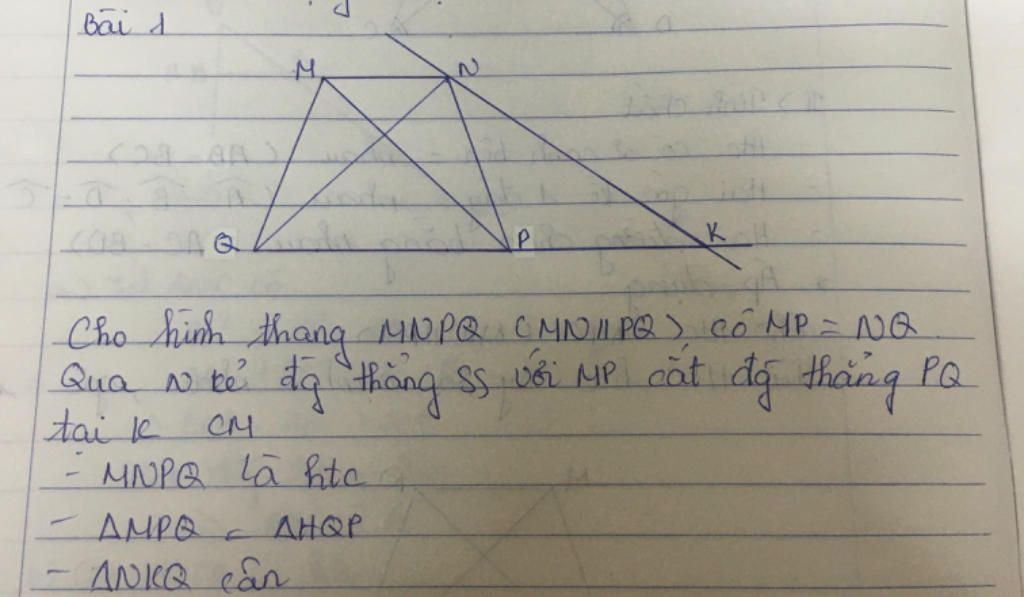 Bài 1
M N
Q P K
Cho hình thang MNPQ (MN//PQ) có MP = NQ
Qua N kẻ đg thẳng SS với MP cắt đg thẳng PQ
tại K CM
- MNPQ là htc
- ΔMPQ = ΔHQP
- ΔNKQ cân